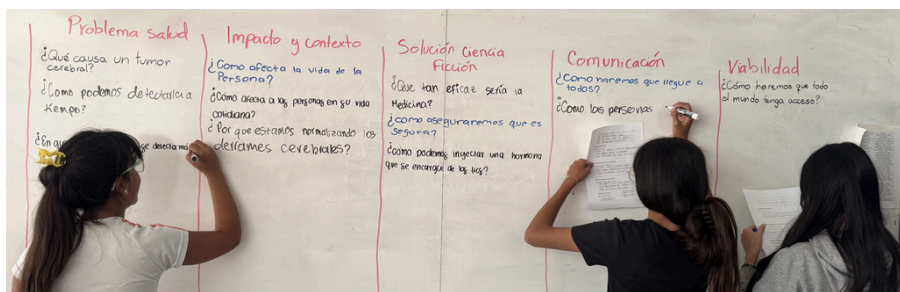 Problema salud
¿Qué causa un tumor
cerebral?
¿Como podemos detectarlo a
tiempo?
¿En
se desarrolla más
Impacto y contexto
¿Como afecta la vida de la
Persona?
¿Cómo afecta a las personas en su vida
cotidiana?
¿Por que estamos normalizando los
derrames cerebrales?
Solución ciencia
Ficción
¿Que tan eficaz sería la
Medicina?
¿como aseguraremos que es
segura?
¿como podemos inyectar una hormona
que se encargue de los
Comunicación
¿Como haremos que llegue a
todos?
¿Como las personas
Viabilidad
¿Cómo haremos que todo
el mundo tenga acceso?